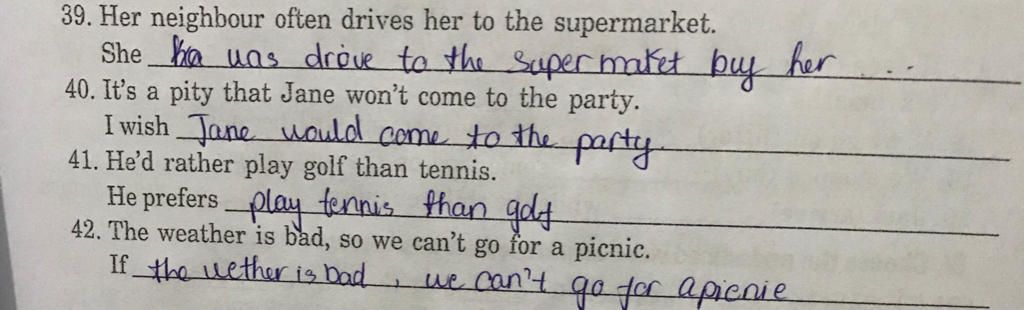 39. Her neighbour often drives her to the supermarket.
She was drove to the Supermaket buy her ...
40. It's a pity that Jane won't come to the party.
I wish Jane would come to the party.
41. He'd rather play golf than tennis.
He prefers play tennis than golf
42. The weather is bad, so we can't go for a picnic.
If the wether is bad, we can't go for apicnie